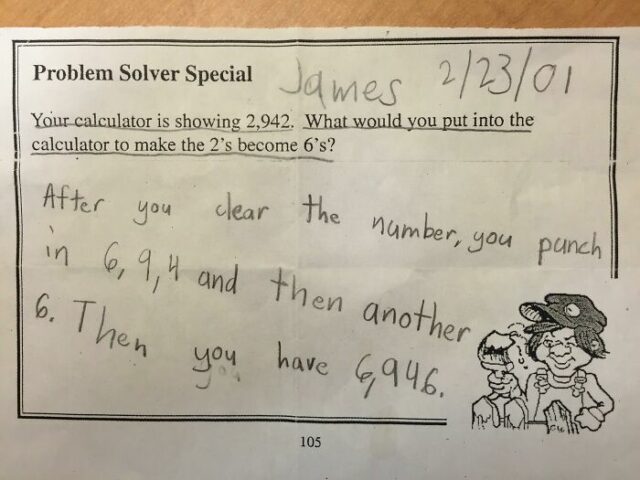 Problem Solver Special James 2/23/01
Your calculator is showing 2,942. What would you put into the
calculator to make the 2's become 6's?
After you clear the number, you punch
in 6, 9, 4 and then another
6. Then you have 6,946.
105